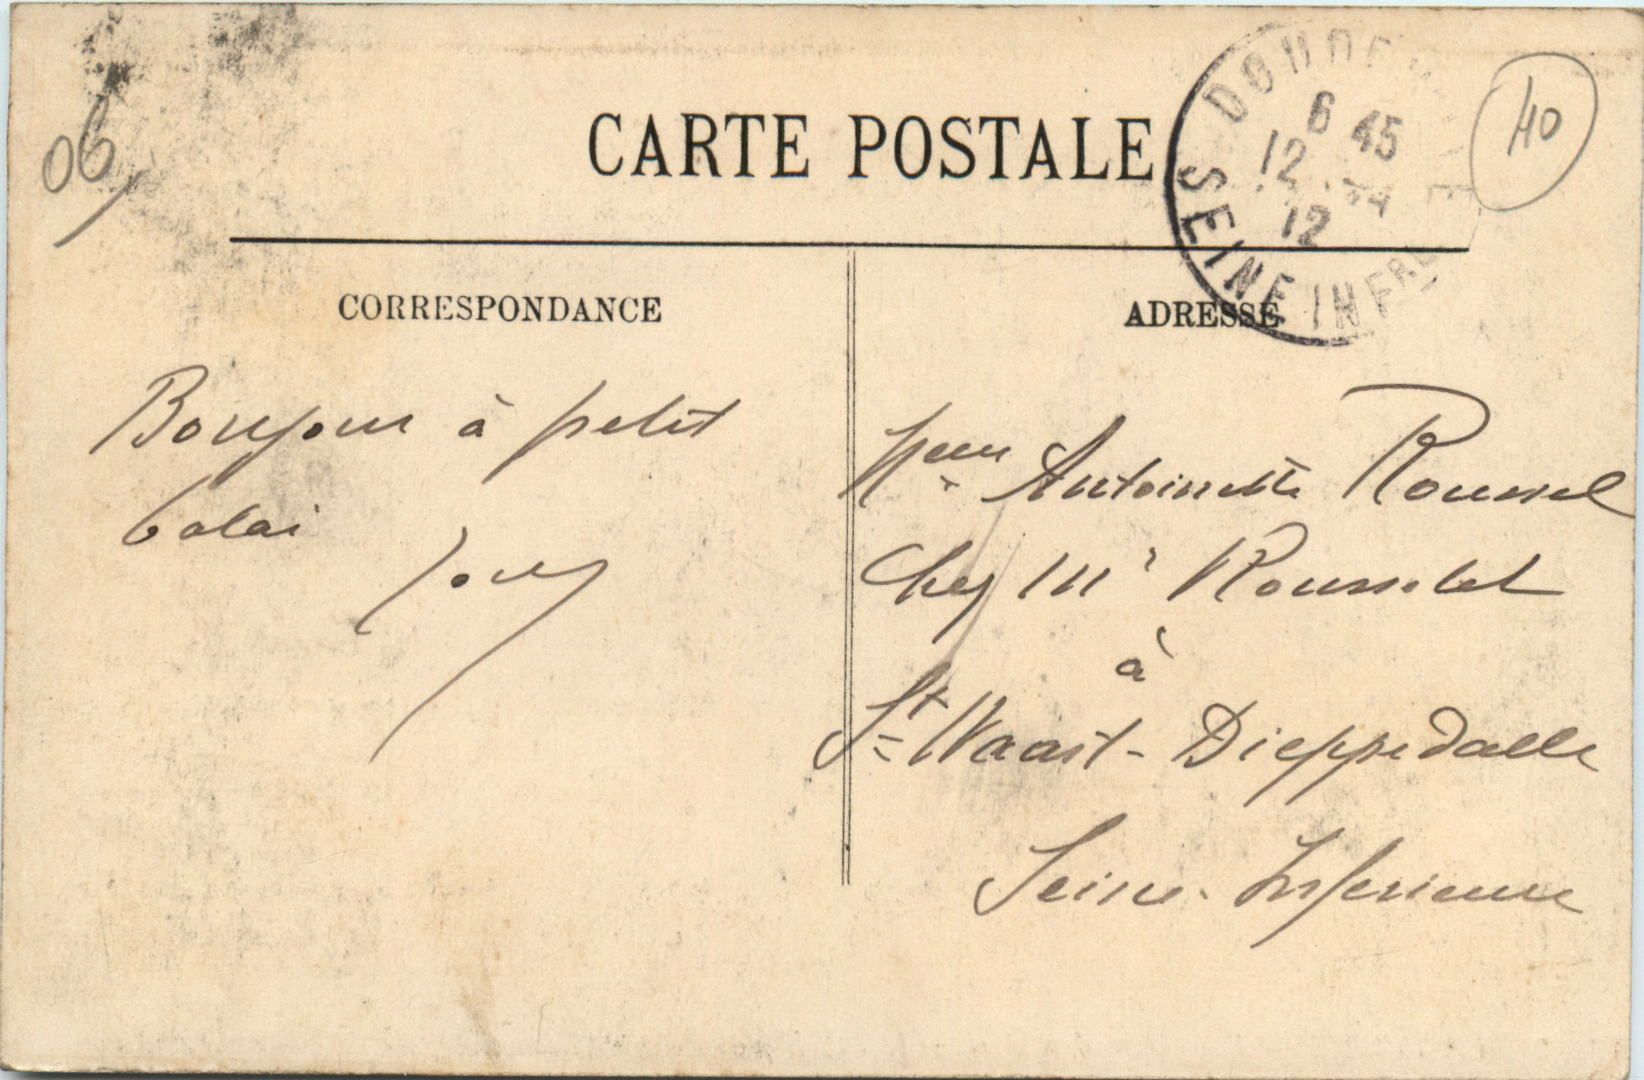 06
CARTE POSTALE
6 45
12
12
SEINE INFRE
40
CORRESPONDANCE
Bonjour à petit
balai
ADRESSE
Antoinette Roussel
Chez Mr Rousselet
à
St Waast-Dieppedalle
Seine-Inferieure